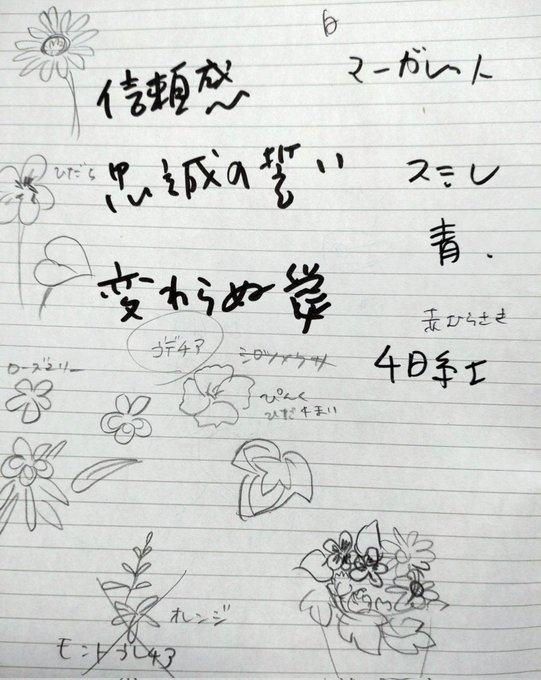 白
信頼感 マーガレット
ひだら
忠誠の誓い スミレ
青.
変わらぬ
赤むらさき
ゴデチア シロツメクサ
4日
ローズマリー
ぴんく
ひだ4まい
オレンジ
モントブレチア